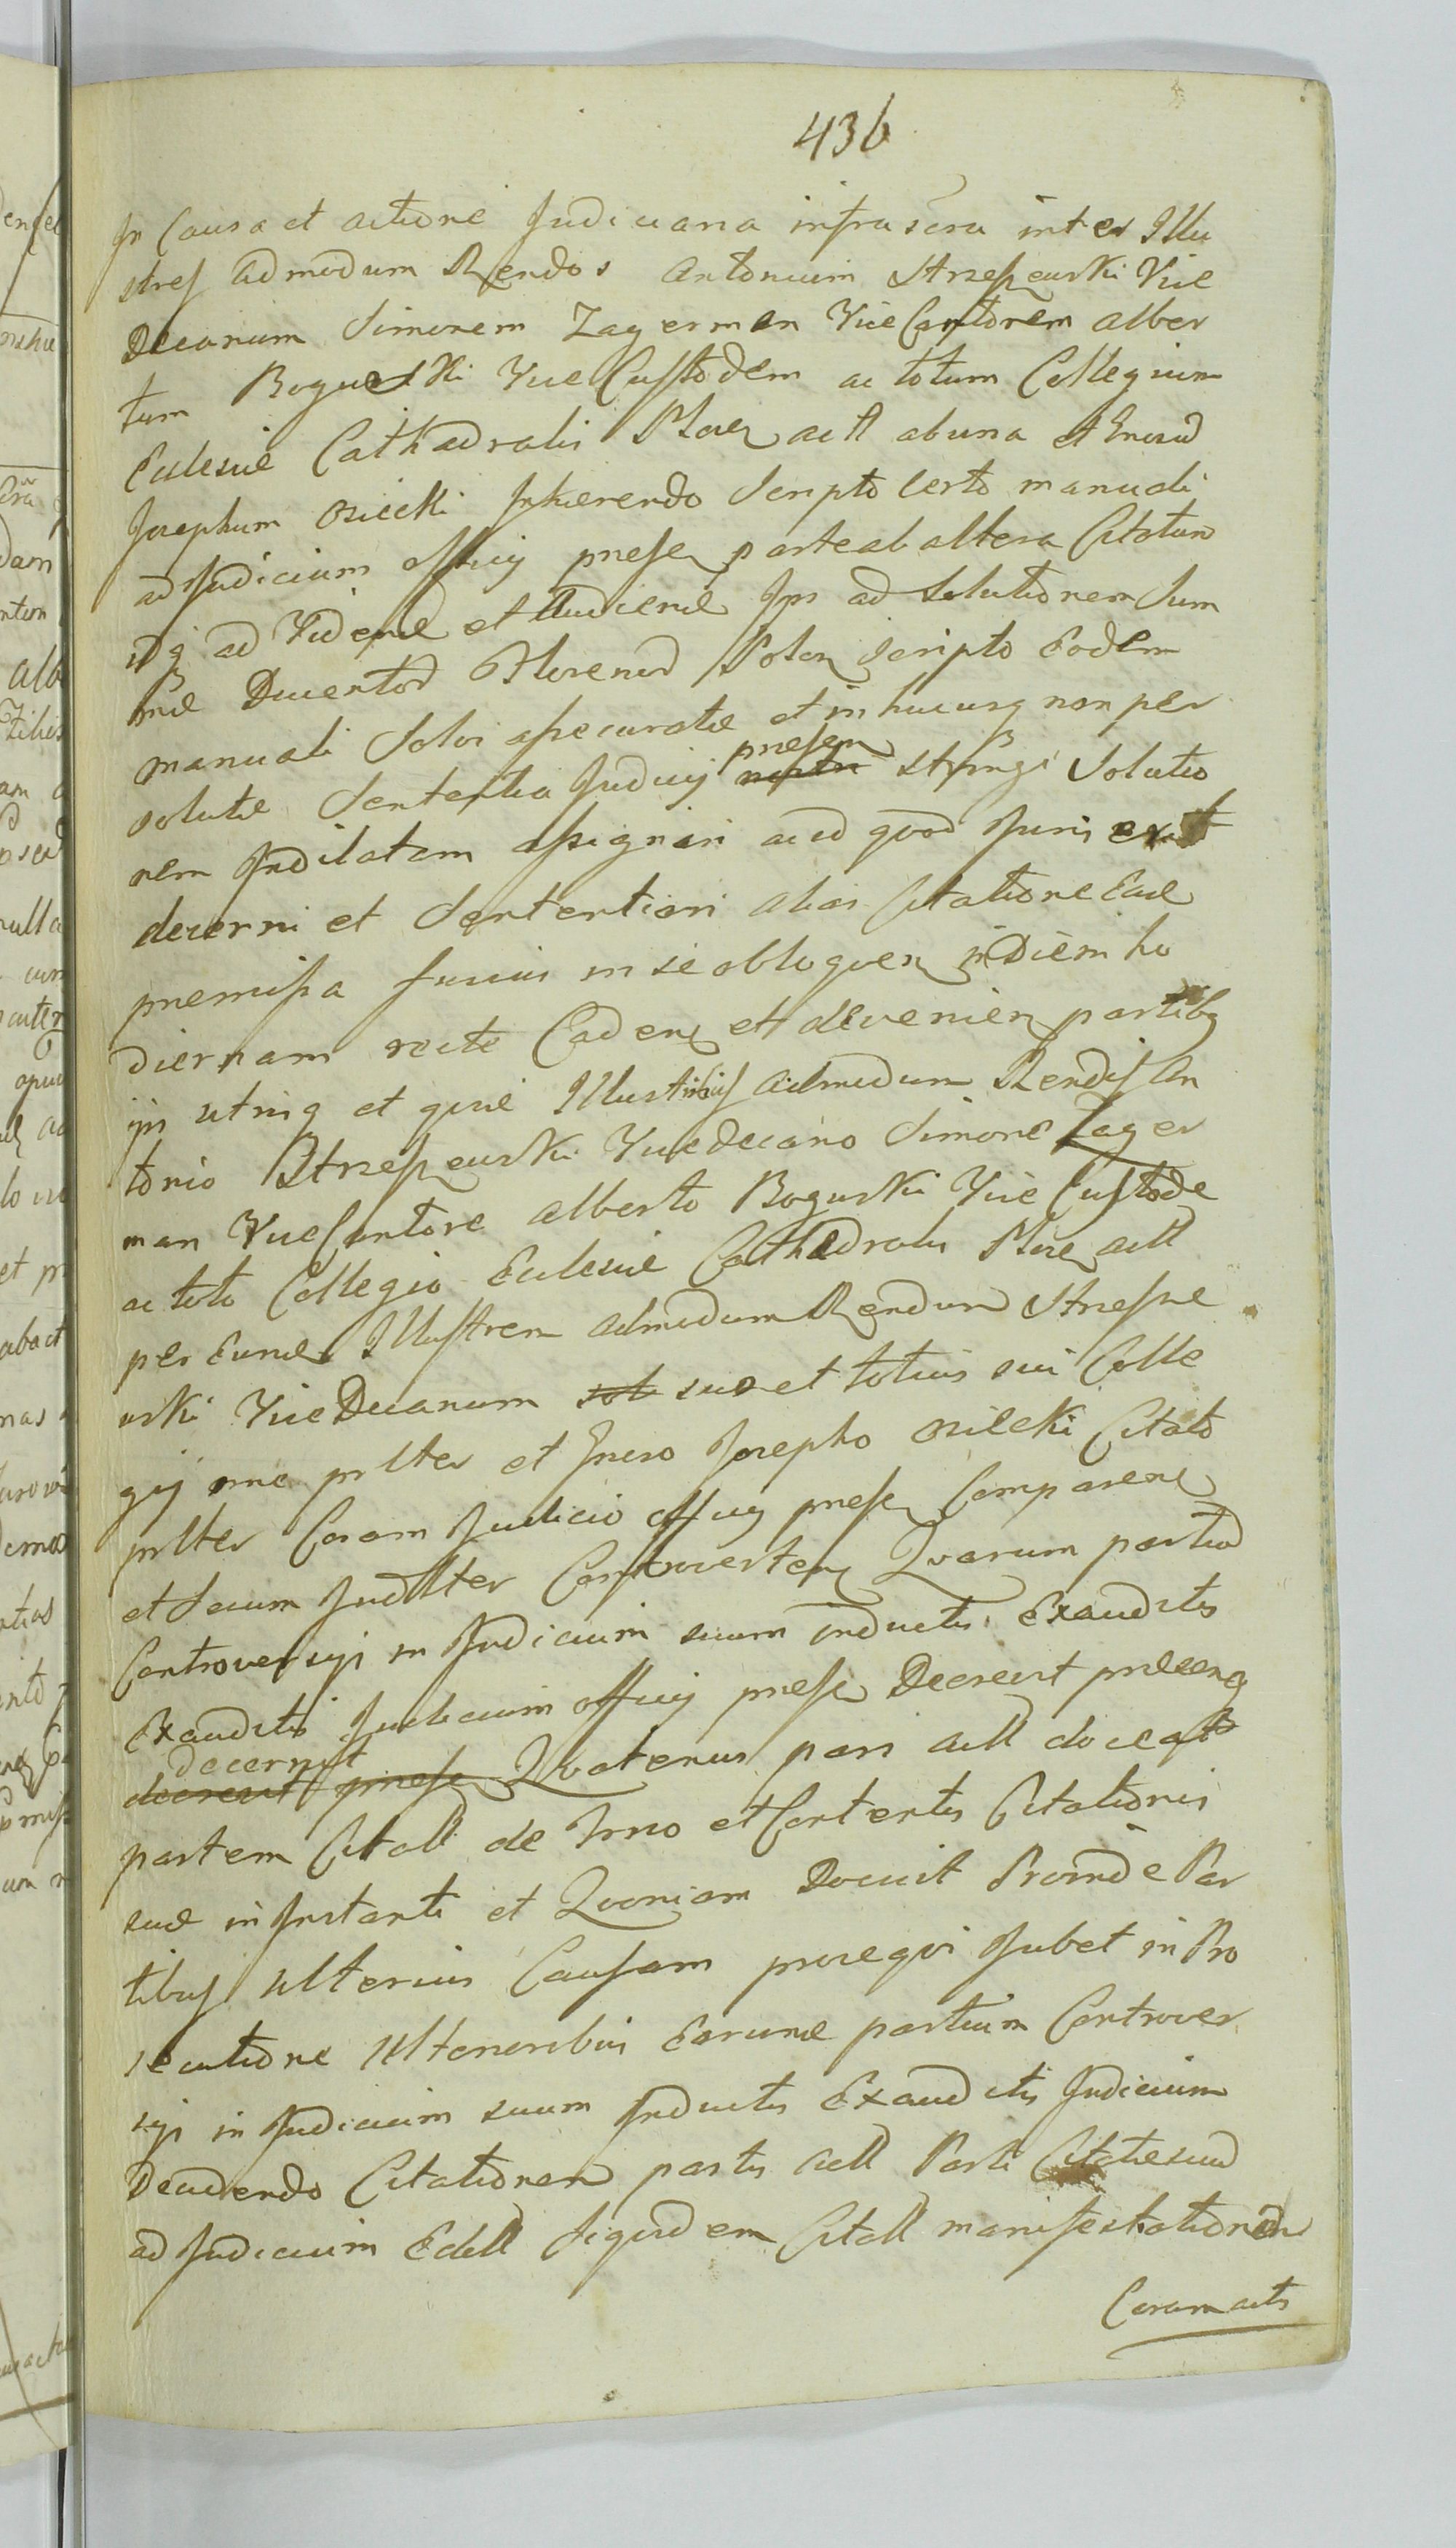 436
In Causa et actione Judiciaria infra scra inter Illu
stres admodum Rendos Antonium Strzeszewski Vice
Decanum Simonem Zagerman Vice Cantorem Alber
tum Boguski Vice Custodem ac totum Collegium
Ecclesiae Cathadralis Ploc actt ab una et
Josephum Osiecki Inhaerendo Scripto Certo manuali
ad Judicium officij praesen parte ab altera Citatum
idq ad Vidend et Audiend Ips ad Solutionem Sum
mae Ducentor Florenor Polon Scripto Eodem
manuali Solvi assecuratae et in hucusq non per
solutae Sententia Judicij praesen nostri Stringi Solutio
nem Indilatam assignari ac id quod Juris erit
decerni et Sententiari alias Citatione Ead
praemissa fusius in se obloquen in Diem ho
diernam recte Caden et devenien partibq
ijs utrinq et quid Illustribus admodum Rendis An
tonio Strzeszewski Vice Decano Simone Zager
man Vice Cantore Alberto Boguski Vice Custode
ac toto Collegio Ecclesiae Cathedralis Ploc actt
per Eund Illustrem admodum Rendum Strzesze
wski Vice Decanum suo et totius sui Colle
gij nne prltter et Josepho Osiecki Citato
prltter Coram Judicio officij praesen Comparen
et Secum Judltter Controverten Quarum partiu
Controversijs in Judicium suum inductis Exauditis
Exauditis Judicium officij praesen Decrevit
decernit decrevit praesen Quatenus pars actt doceat
partem Citatt de Trno et Contentis Citationis
suae in Instanti et Quoniam Docuit Proinde Par
tibus ulterius Causam prosequi Jubet in Pro
secutione Ulterioribus Earund partium Controver
sijs in Judicium suum Inductis Exauditis Judicium
Decidendo Citationem partis actt Parti Citatae suu
ad Judicium Edtt siquidem Citatt manifestationem
Coram actis